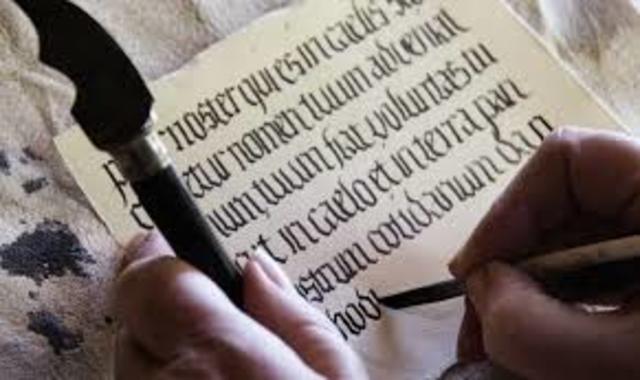 noster qui es in caelis
tur nomen tuum adveniat
num tuum fiat voluntas tu
ut in caelo et in terra pan
ostrum cotidianum da n
hodi